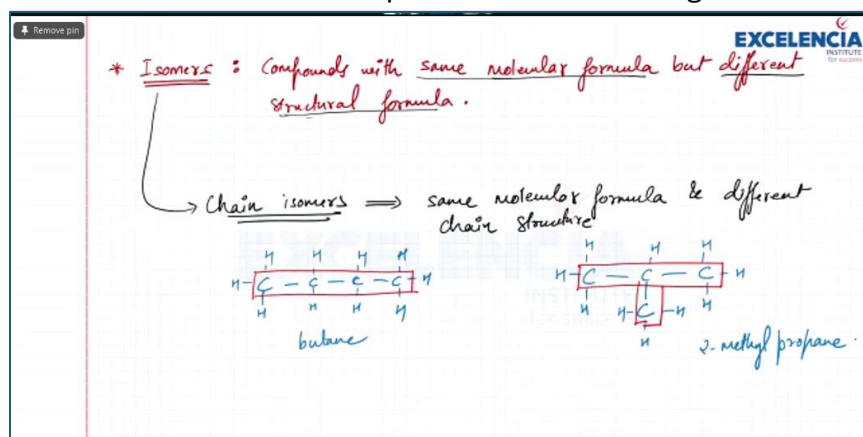 Remove pin
EXCELENCIA
INSTITUTE
for success
* Isomers : Compounds with same molecular formula but different
structural formula.
Chain isomers ⟹ same molecular formula & different
chain structure
H H H H
H-C - C - C - C-H
H H H H
butane
H H H
H-C - C - C-H
H H-C-H H
H
2-methyl propane.